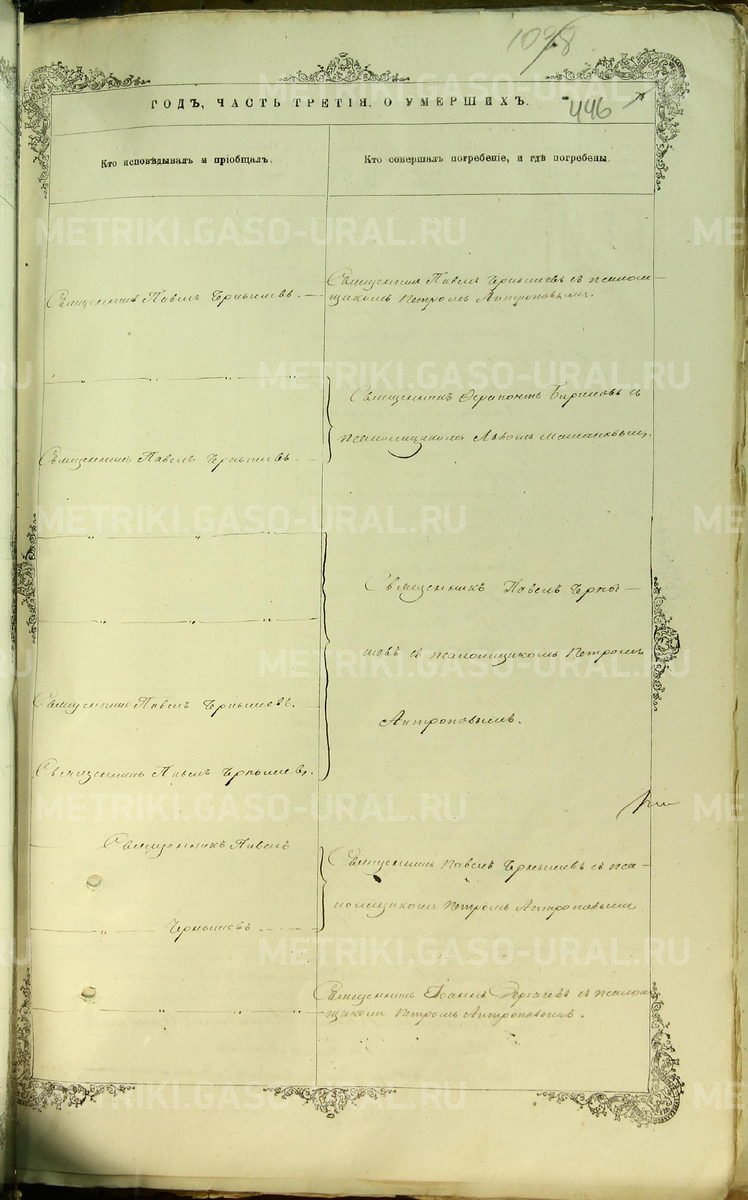 1098
446
ГОДЪ, ЧАСТЬ ТРЕТІЯ, О УМЕРШИХЪ.
Кто исповѣдывалъ и пріобщалъ.
Кто совершалъ погребеніе, и гдѣ погребены.
Священникъ Павелъ Чернышевъ
Священникъ Павелъ Чернышевъ съ псалом-
щикомъ Петромъ Антроповымъ.
Священникъ
съ
псаломщикомъ
Священникъ Павелъ Чернышевъ
Священникъ Павелъ Черны-
шевъ съ псаломщикомъ Петромъ
Антроповымъ.
Священникъ Павелъ Чернышевъ.
Священникъ Павелъ Чернышевъ.
Священникъ Павелъ
Чернышевъ
Священникъ Павелъ Чернышевъ съ пса-
ломщикомъ Петромъ Антроповымъ
Священникъ Іоаннъ Дергачевъ съ псалом-
щикомъ Петромъ Антроповымъ.
METRIKI.GASO-URAL.RU